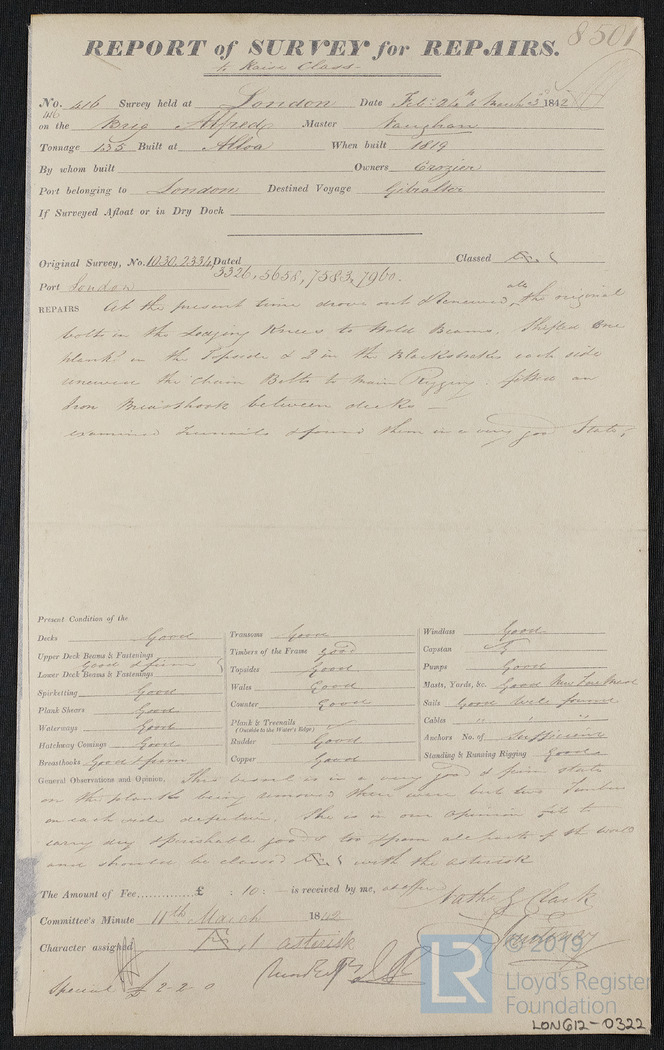 8501
REPORT of SURVEY for REPAIRS.
to Raise Class
No. 416 Survey held at London Date Feb: 24th to March 3d 1842
416
on the Brig Alfred Master Vaughan
Tonnage 135 Built at Alloa When built 1819
By whom built Owners Crozier
Port belonging to London Destined Voyage Gibralter
If Surveyed Afloat or in Dry Dock
Original Survey, No. 1030, 2334 Dated Classed Æ 1
3326, 5658, 7583, 7960.
Port London
REPAIRS At the present time drove out & renewed all the original
bolts in the Lodging Knees to Hold Beams, Shifted One
plank in the Topside & 2 in the Blackstrakes each side
renewed the Chain Bolts to Main Rigging: fitted an
Iron Breasthook between decks —
examined Treenails & found them in a very good State.
Present Condition of the
Decks Good
Upper Deck Beams & Fastenings
Good & firm
Lower Deck Beams & Fastenings
Spirketting Good
Plank Shears Good
Waterways Good
Hatchway Comings Good
Breasthooks Good & firm
Transoms Good
Timbers of the Frame good
Topsides Good
Wales Good
Counter Good
Plank & Treenails
(Outside to the Water's Edge)
Rudder Good
Copper Good
Windlass Good
Capstan
Pumps Good
Masts, Yards, &c. Good New Fore Mast
Sails Good Well found
Cables " " "
Anchors No. of Sufficient
Standing & Running Rigging Good
General Observations and Opinion, This vessel is in a very good & firm state
on the planks being removed there were but two Timbers
on each side defective. She is in our opinion fit to
carry dry & perishable goods to & from all parts of the world
and should be classed Æ 1 with the asterisk
The Amount of Fee............ £ : 10: — is received by me,
Nathl G Clark
Committee's Minute 11th March 1842
J Courtney
Character assigned Æ 1 asterisk
Special £ 2-2 0
LR
© 2019
Lloyd's Register
Foundation
LON612-0322